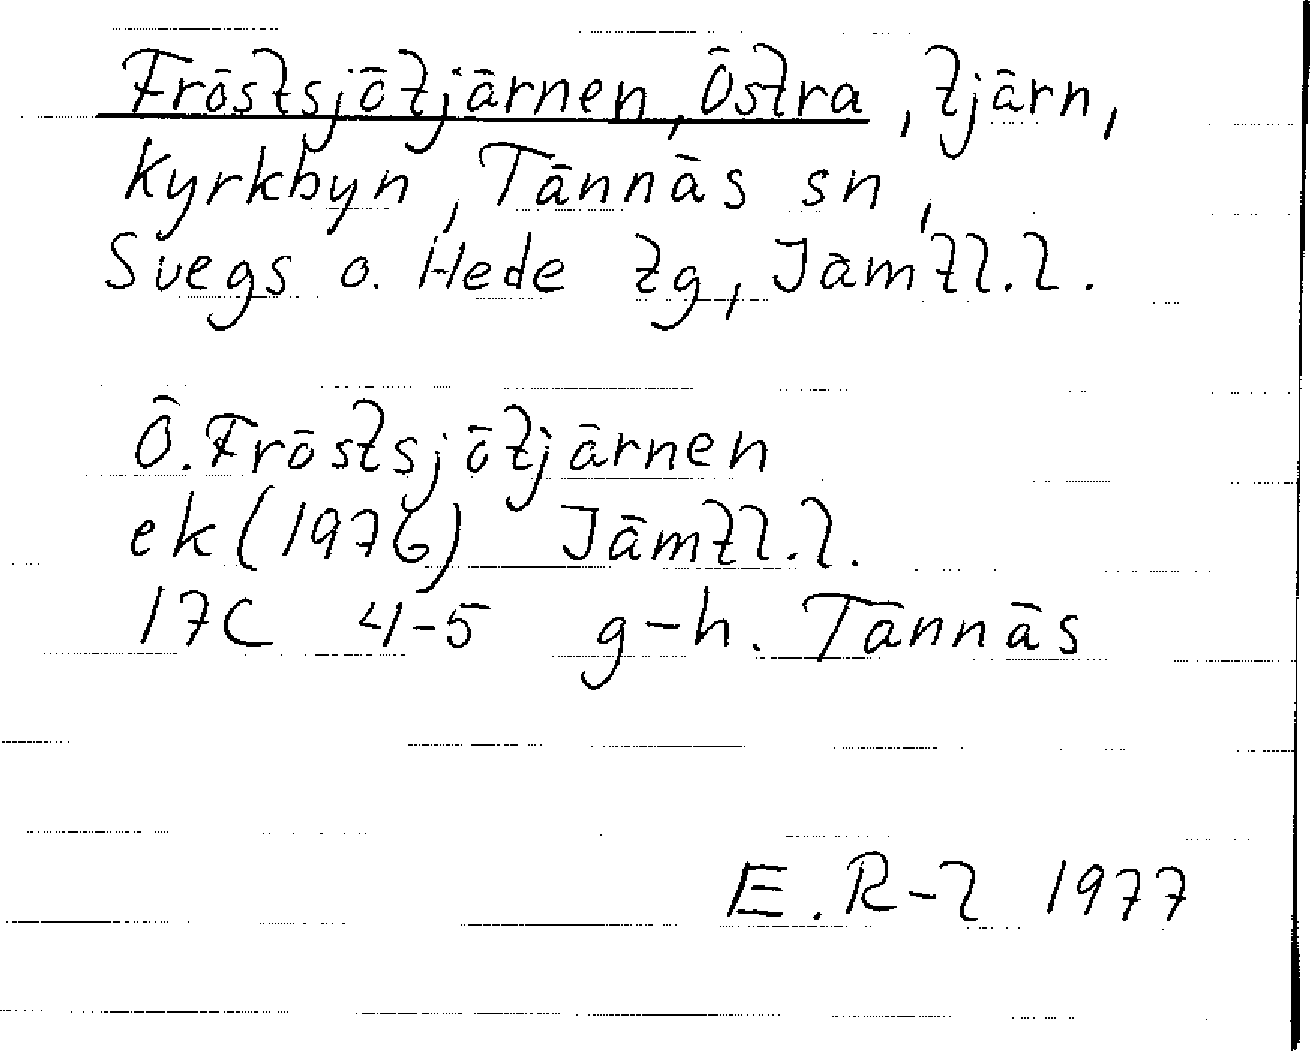 Fröstsjötjärnen, Östra, tjärn,
kyrkbyn, Tännäs sn,
Svegs o. Hede tg, Jämtl.l.
Ö. Fröstsjötjärnen
ek (1976) Jämtl.l.
17C 4-5 g-h. Tännäs
E. R-l 1977